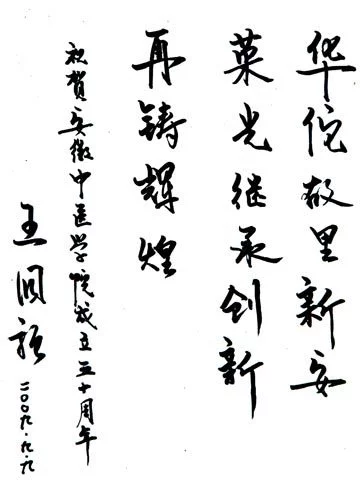 华佗故里新安
荣光继承创新
再铸辉煌
祝贺安徽中医学院成立五十周年
王
二〇〇九.九.九